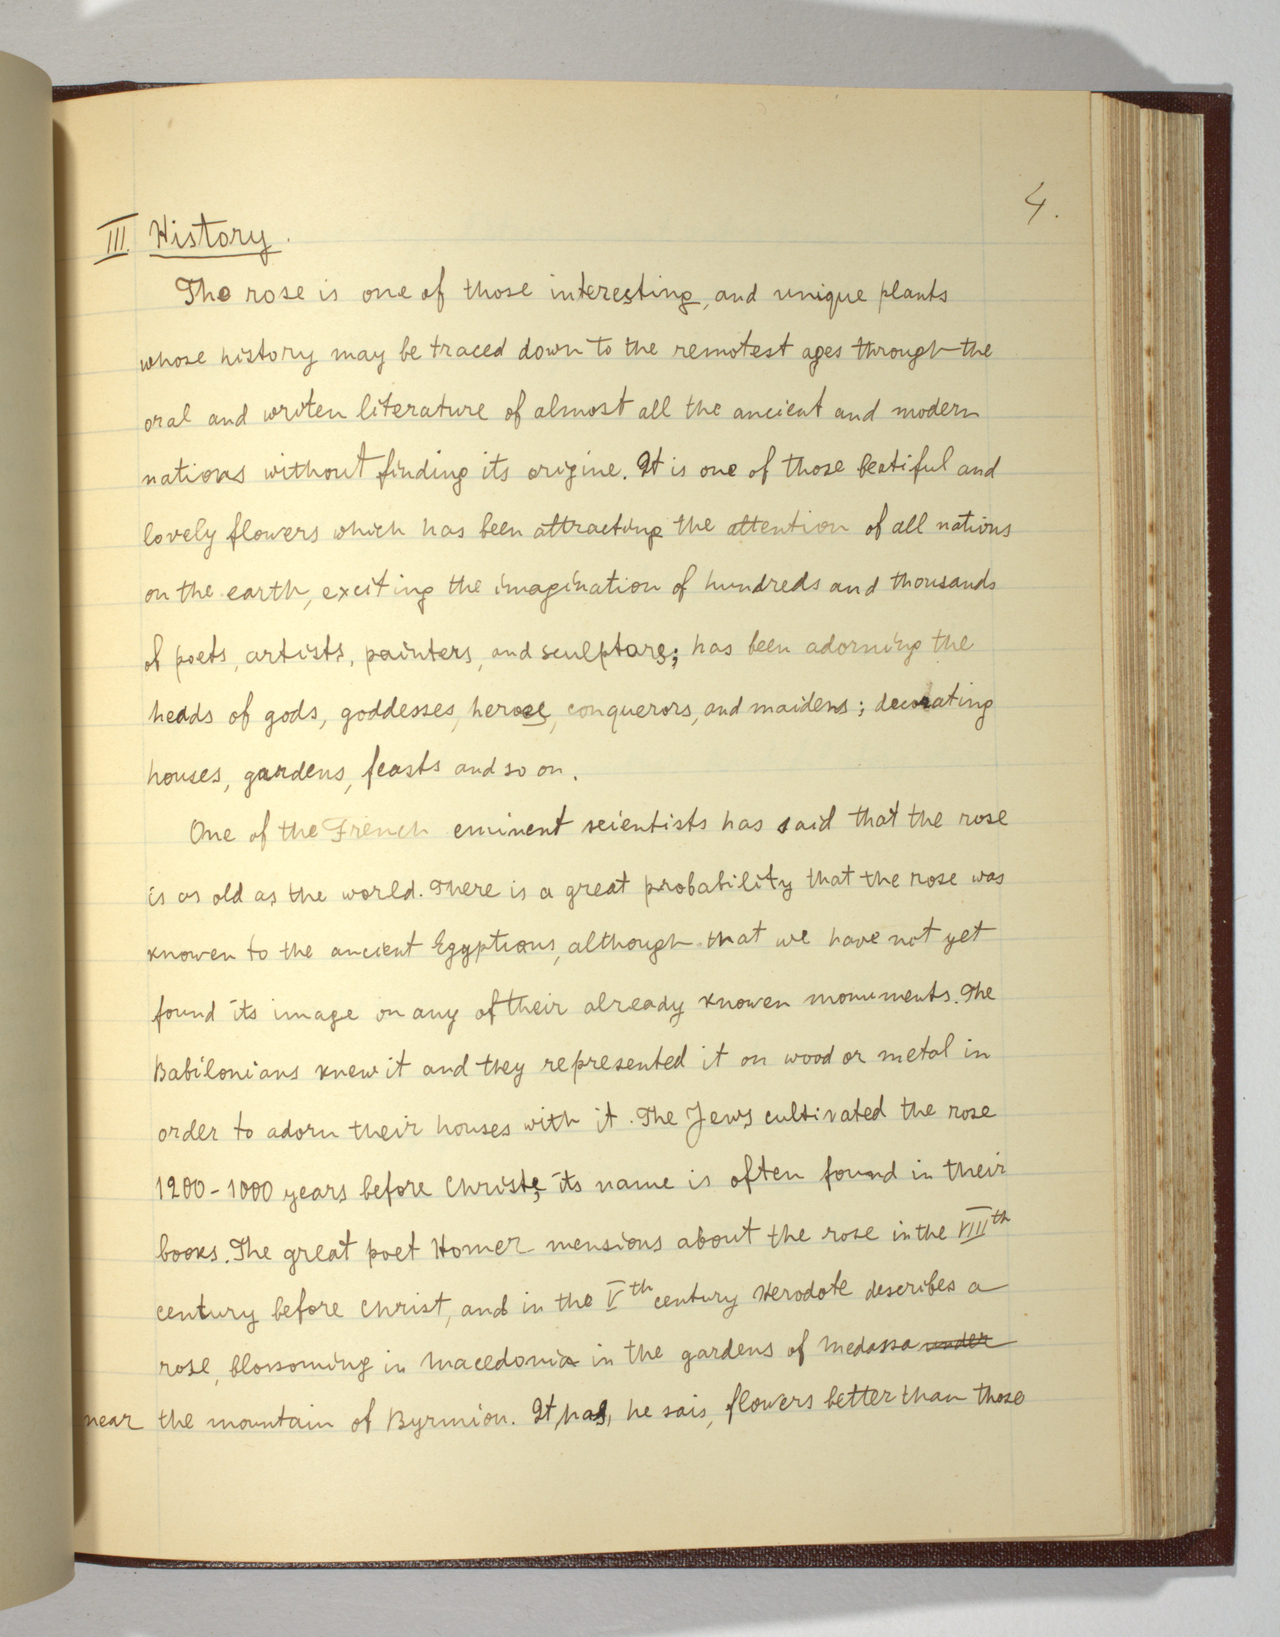 4.
III History.
The rose is one of those interesting, and unique plants
whose history may be traced down to the remotest ages through the
oral and writen literature of almost all the ancient and modern
nations without finding its origine. It is one of those beatiful and
lovely flowers which has been attracting the attention of all nations
on the earth, exciting the imagination of hundreds and thousands
of poets, artists, painters, and sculptors; has been adorning the
heads of gods, goddesses, herose, conquerors, and maidens; decorating
houses, gardens, feasts and so on.
One of the French eminent scientists has said that the rose
is as old as the world. There is a great probability that the rose was
knowen to the ancient Egyptions, although that we have not yet
found its image on any of their already knowen monuments. The
Babilonians knew it and they represented it on wood or metal in
order to adorn their houses with it. The Jews cultivated the rose
1200-1000 years before Christe; its name is often found in their
books. The great poet Homer mensions about the rose in the VIIIth
century before Christ, and in the Vth century Herodote describes a
rose, blossoming in Macedonia in the gardens of Medassa under
near the mountain of Byrmion. It has, he sais, flowers better than those